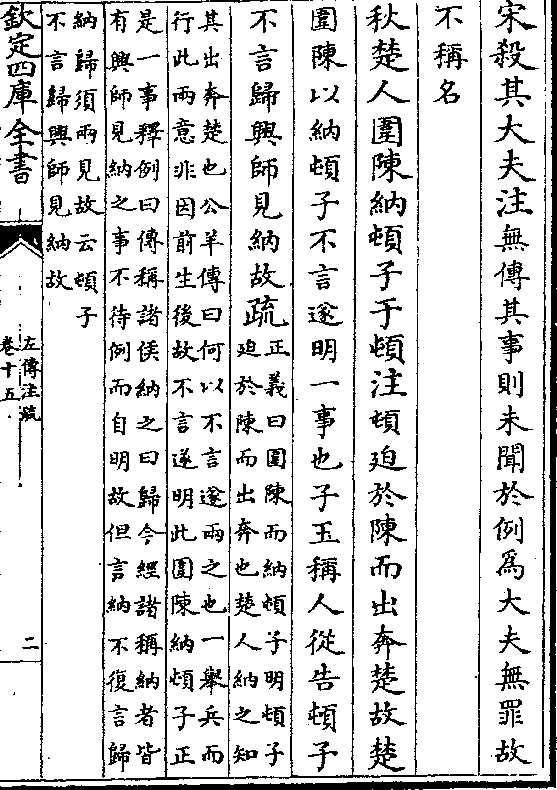 宋殺其大夫注無傳其事則未聞於例為大夫無罪故
不稱名
秋楚人圍陳納頓子于頓注頓迫於陳而出奔楚故楚
圍陳以納頓子不言遂明一事也子玉稱人從告頓子
不言歸興師見納故疏正義曰圍陳而納頓子明頓子
迫於陳而出奔也楚人納之知
其出奔楚也公羊傳曰何以不言遂兩之也一舉兵而
行此兩意非因前生後故不言遂明此圍陳納頓子正
是一事釋例曰傳稱諸侯納之曰歸今經諸稱納者皆
有興師見納之事不待例而自明故但言納不復言歸
納歸須兩見故云頓子
不言歸興師見納故
欽定四庫全書
左傳注疏
卷十五
二